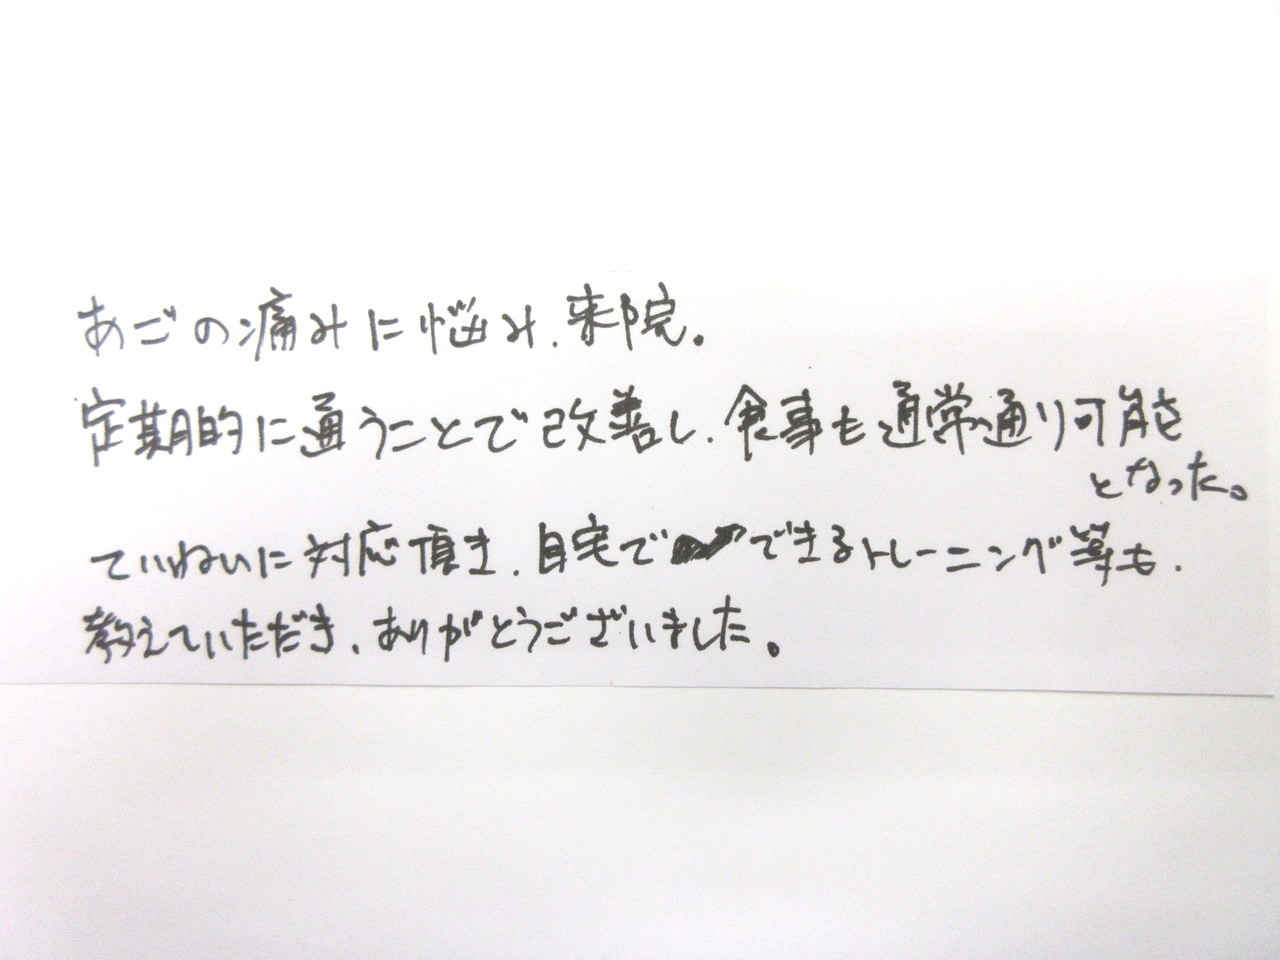 あごの痛みに悩み、来院。
定期的に通うことで改善し、食事も通常通り可能
となった。
ていねいに対応頂き、自宅で できるトレーニング等も、
教えていただき、ありがとうございました。